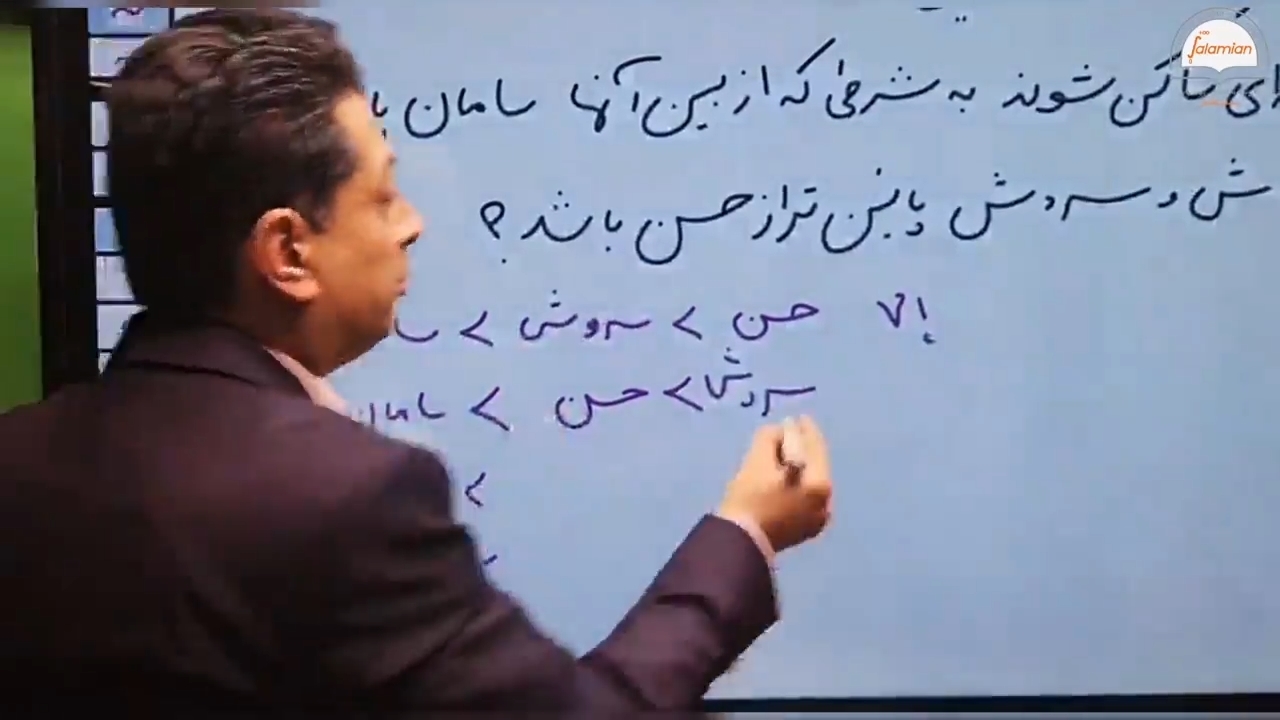 salamian
ساکن شوند به شرطی که از بین آنها سامان با
ش و سروش پایین تر از حسن باشد؟
حسن > سروش >
سروش > حسن > سامان
>